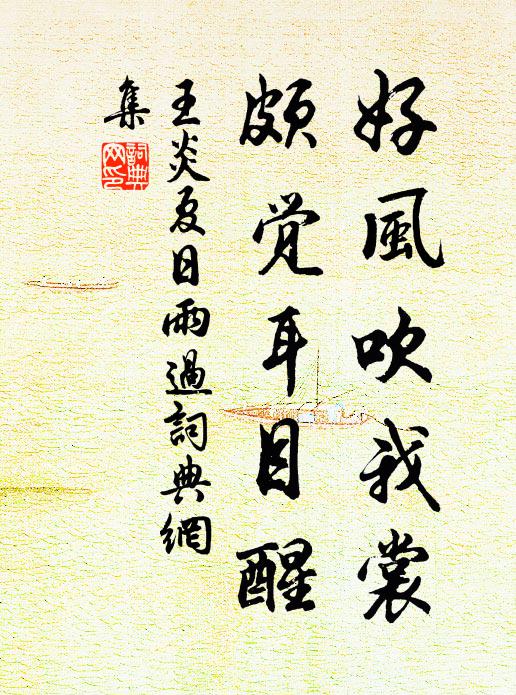 好風吹我裳
頗覺耳目醒
王炎夏日雨過詞典網
集
詞典網印